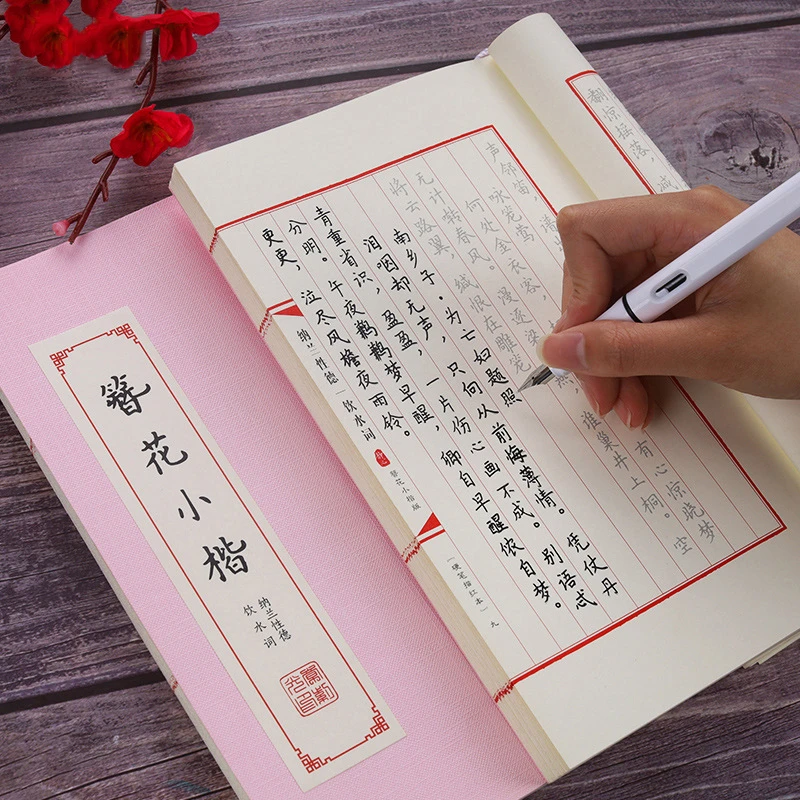 翻惊摇落,减
声邻笛,谱
咏笼莺
何处金衣客,
有心惊晓梦
无计转春风。漫逐梁
谁巢井上桐。空
将云路翼,缄恨在雕笼
南乡子。为亡妇题照
泪咽却无声,只向从前悔薄情。凭仗丹
青重省识,盈盈,一片伤心画不成。别语忒
分明。午夜鹣鹣梦早醒,卿自早醒侬自梦。
更更,泣尽风檐夜雨铃。
纳兰性德|饮水词
簪花小楷版
「硬笔描红本」
九
簪花小楷
纳兰性德
饮水词